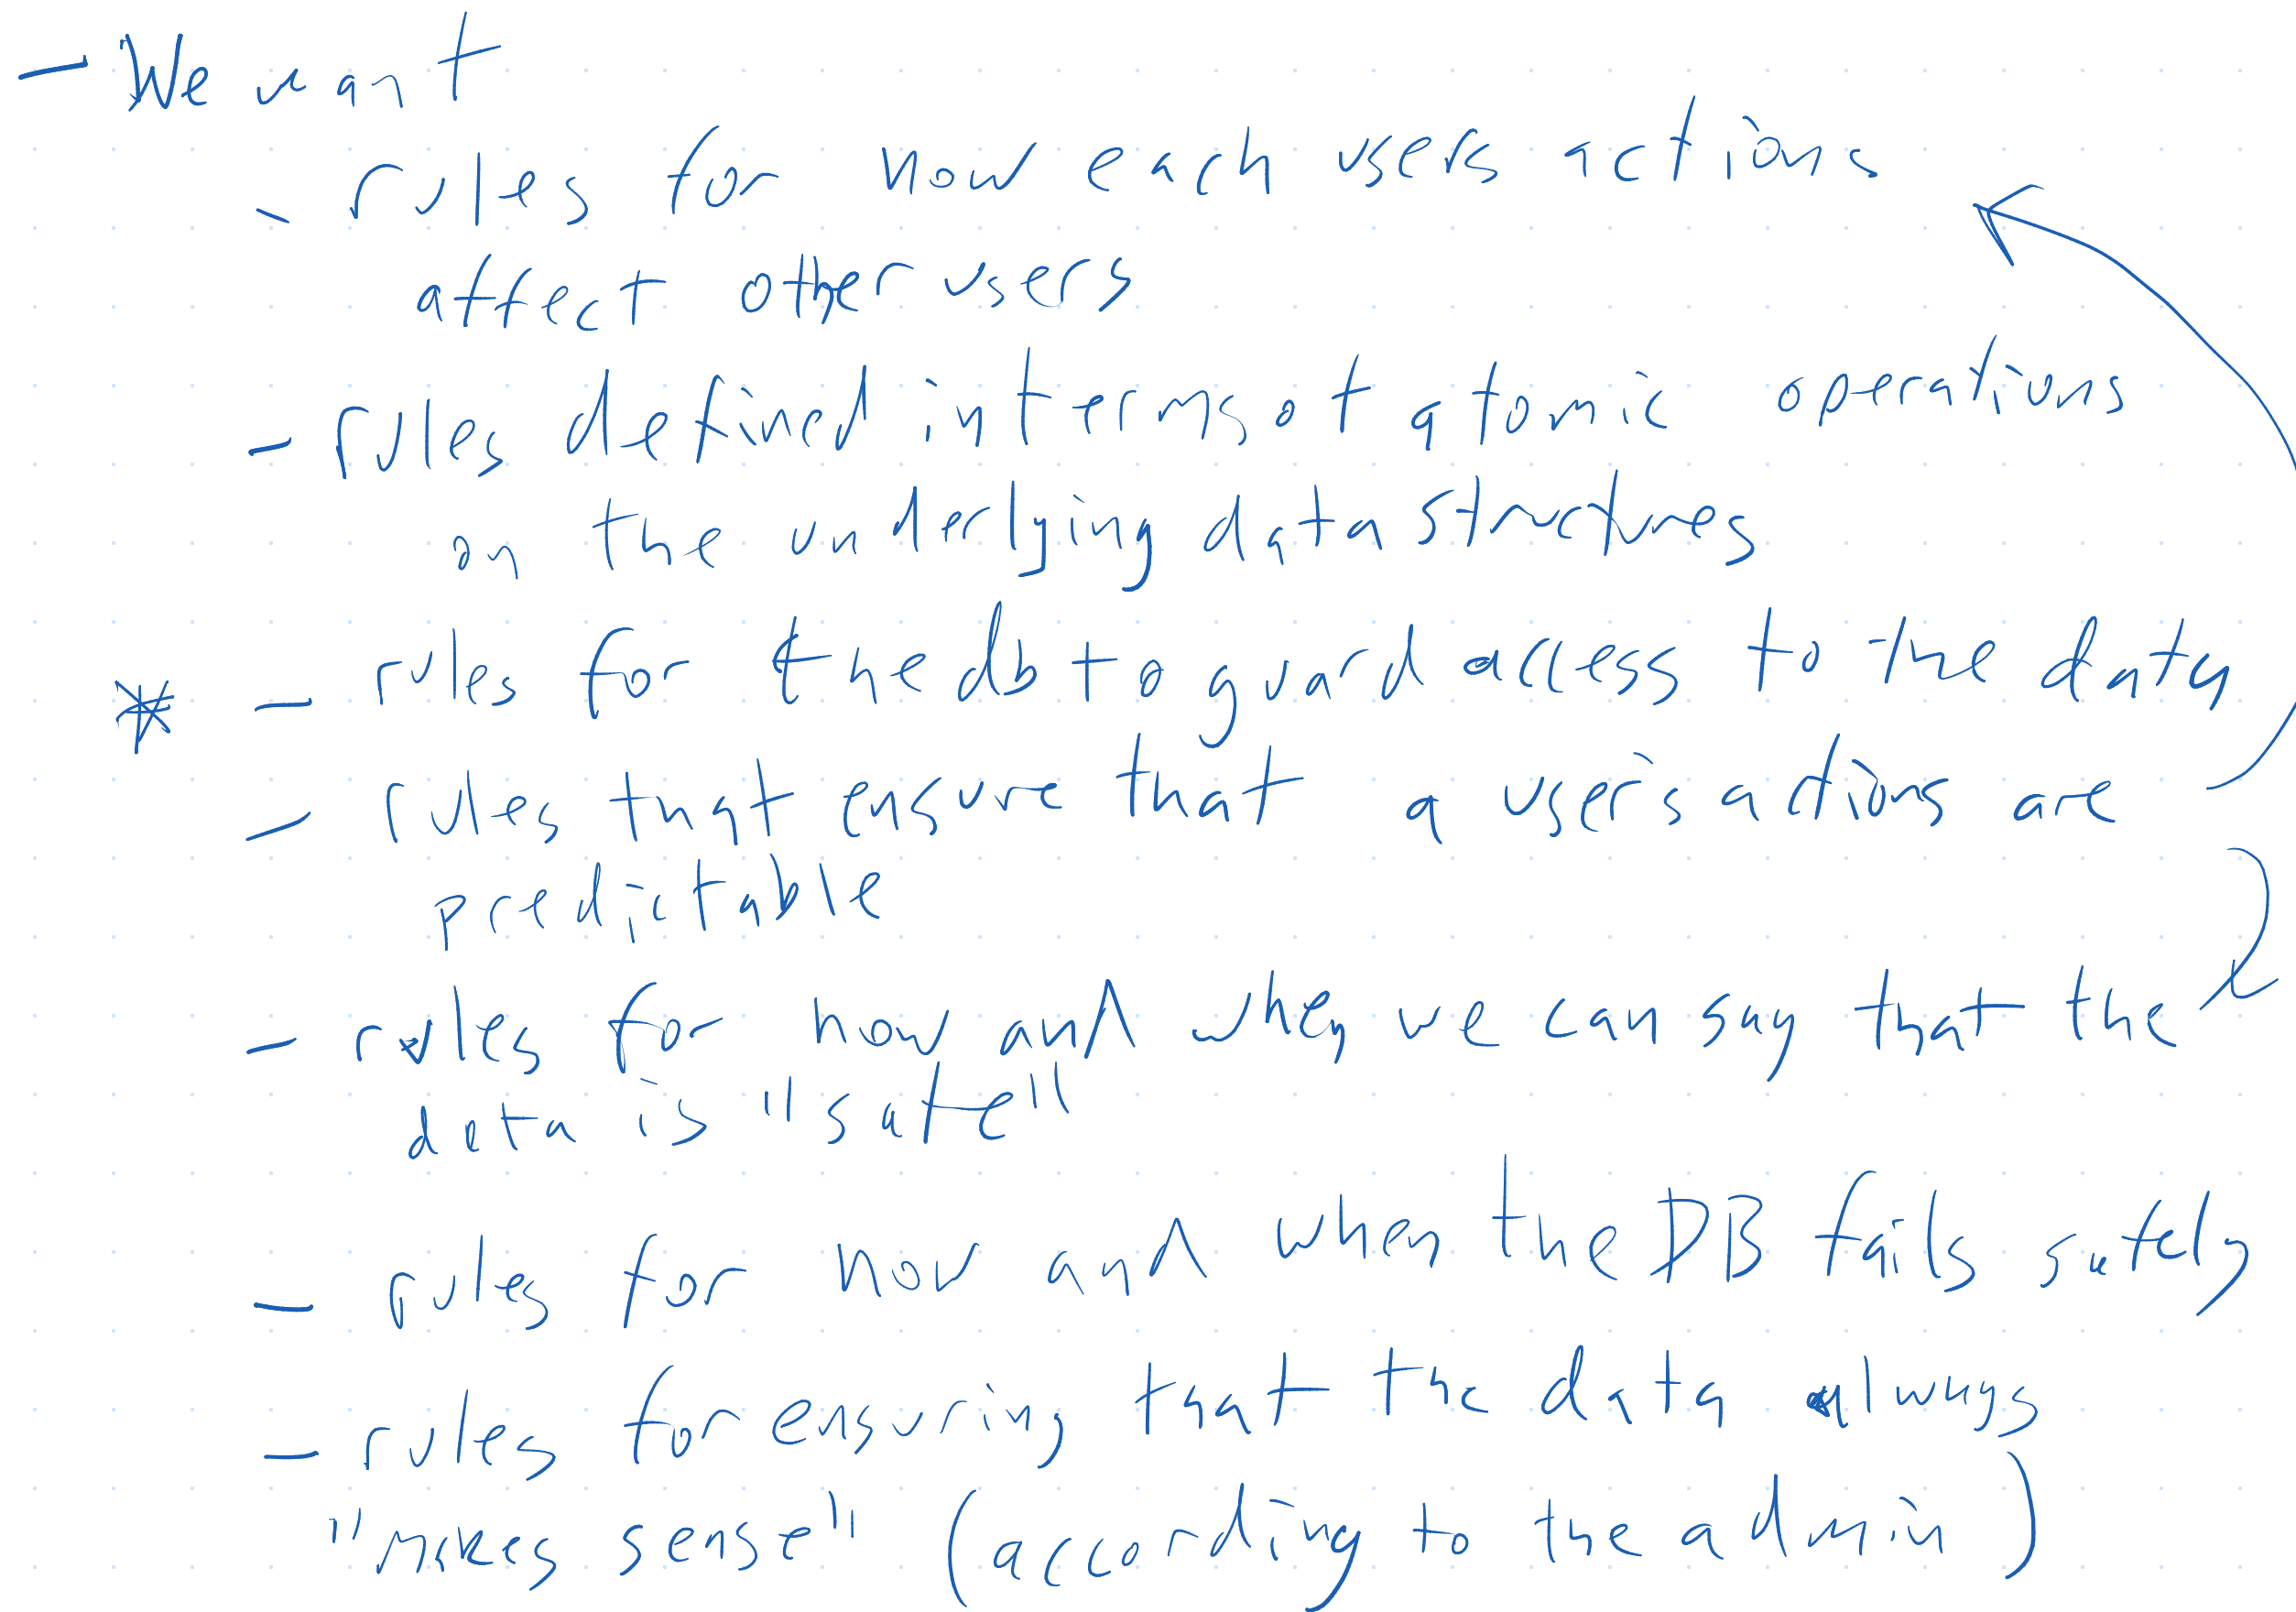 - We want
- rules for how each users actions
affect other users
- rules defined in terms of atomic operations
on the underlying data structures
* - rules for the db to guard access to the data
- rules that ensure that a user's actions are
predictable
- rules for how and when we can say that the
data is "safe"
- rules for how and when the DB fails safely
- rules for ensuring that the data always
"makes sense" (according to the admin)